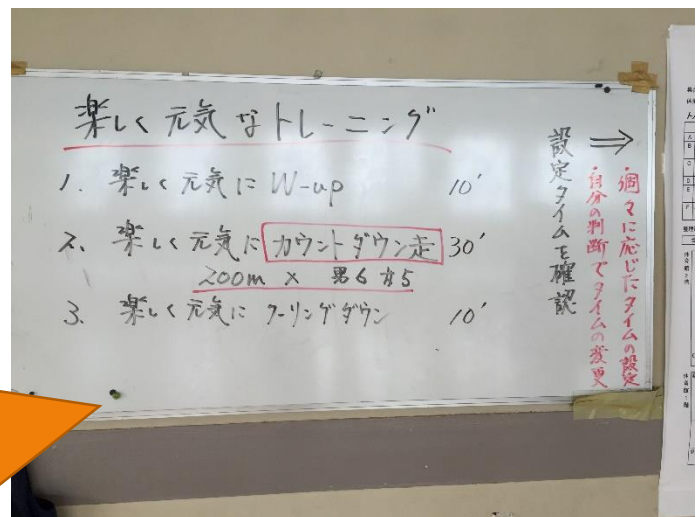 楽しく元気なトレーニング
1. 楽しく元気に W-up 10'
2. 楽しく元気に カウントダウン走 30'
200m × 男6 女5
3. 楽しく元気に クーリングダウン 10'
設定タイムを確認
⇒
個々に応じたタイムの設定
自分の判断でタイムの変更